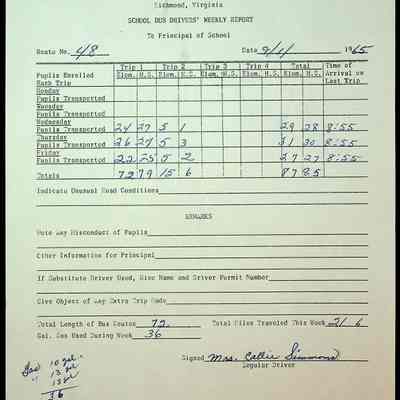 Richmond, Virginia
SCHOOL BUS DRIVERS' WEEKLY REPORT
To Principal of School
Route No. 48 Date 9/1/ 1965
Trip 1 Trip 2 Trip 3 Trip 4 Total Time of
Pupils Enrolled Elem. H.S. Elem. H.S. Elem. H.S. Elem. H.S. Elem. H.S. Arrival on
Each Trip Last Trip
Monday
Pupils Transported
Tuesday
Pupils Transported
Wednesday
Pupils Transported 24 27 5 1 29 28 8:55
Thursday
Pupils Transported 26 27 5 3 31 30 8:55
Friday
Pupils Transported 22 25 5 2 27 27 8:55
Totals 72 79 15 6 87 85
Indicate Unusual Road Conditions
REMARKS
Note Any Misconduct of Pupils
Other Information for Principal
If Substitute Driver Used, Give Name and Driver Permit Number
Give Object of Any Extra Trip Made
Total Length of Bus Routes 72 Total Miles Traveled This Week 216
Gal. Gas Used During Week 36
Signed Mrs. Callie Simmons
Regular Driver
Gas 10 gal.
" 13 gal
13 gal
36